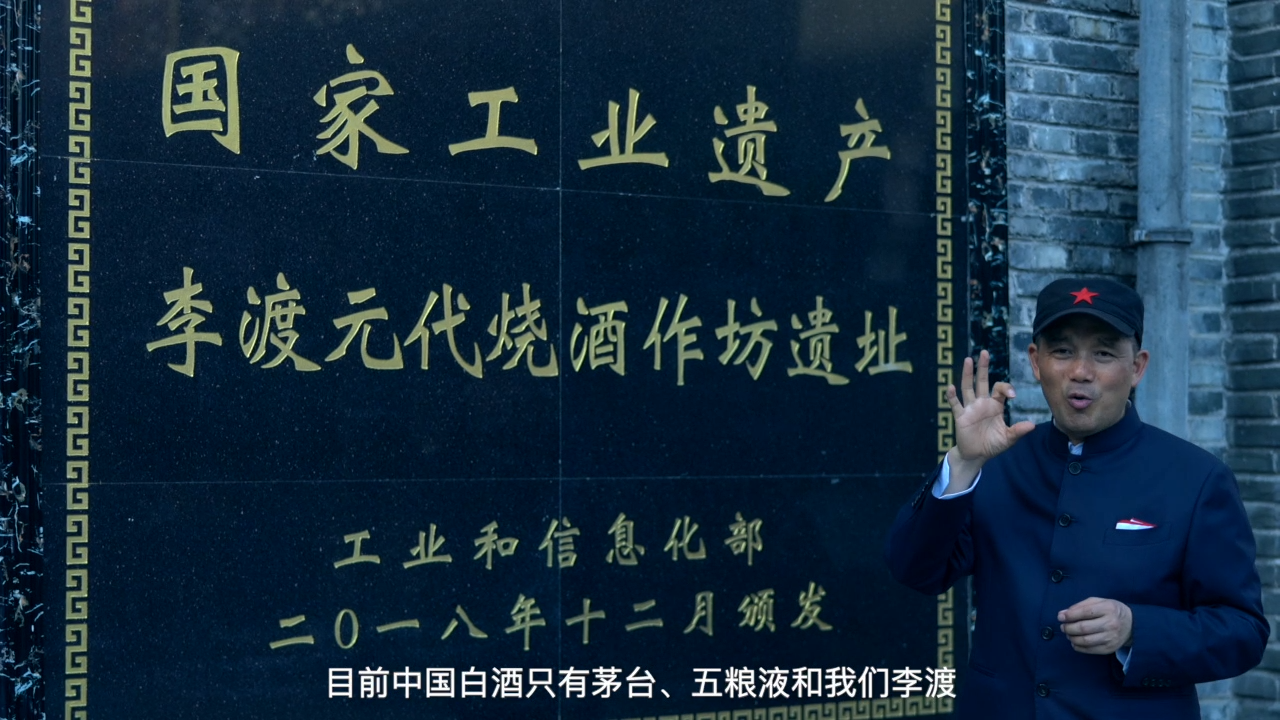 国家工业遗产
李渡元代烧酒作坊遗址
工业和信息化部
二0一八年十二月颁发
目前中国白酒只有茅台、五粮液和我们李渡